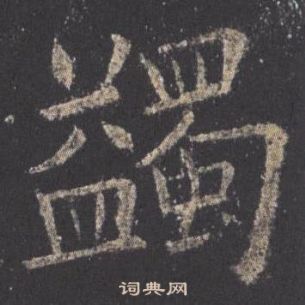 蠲
词典网